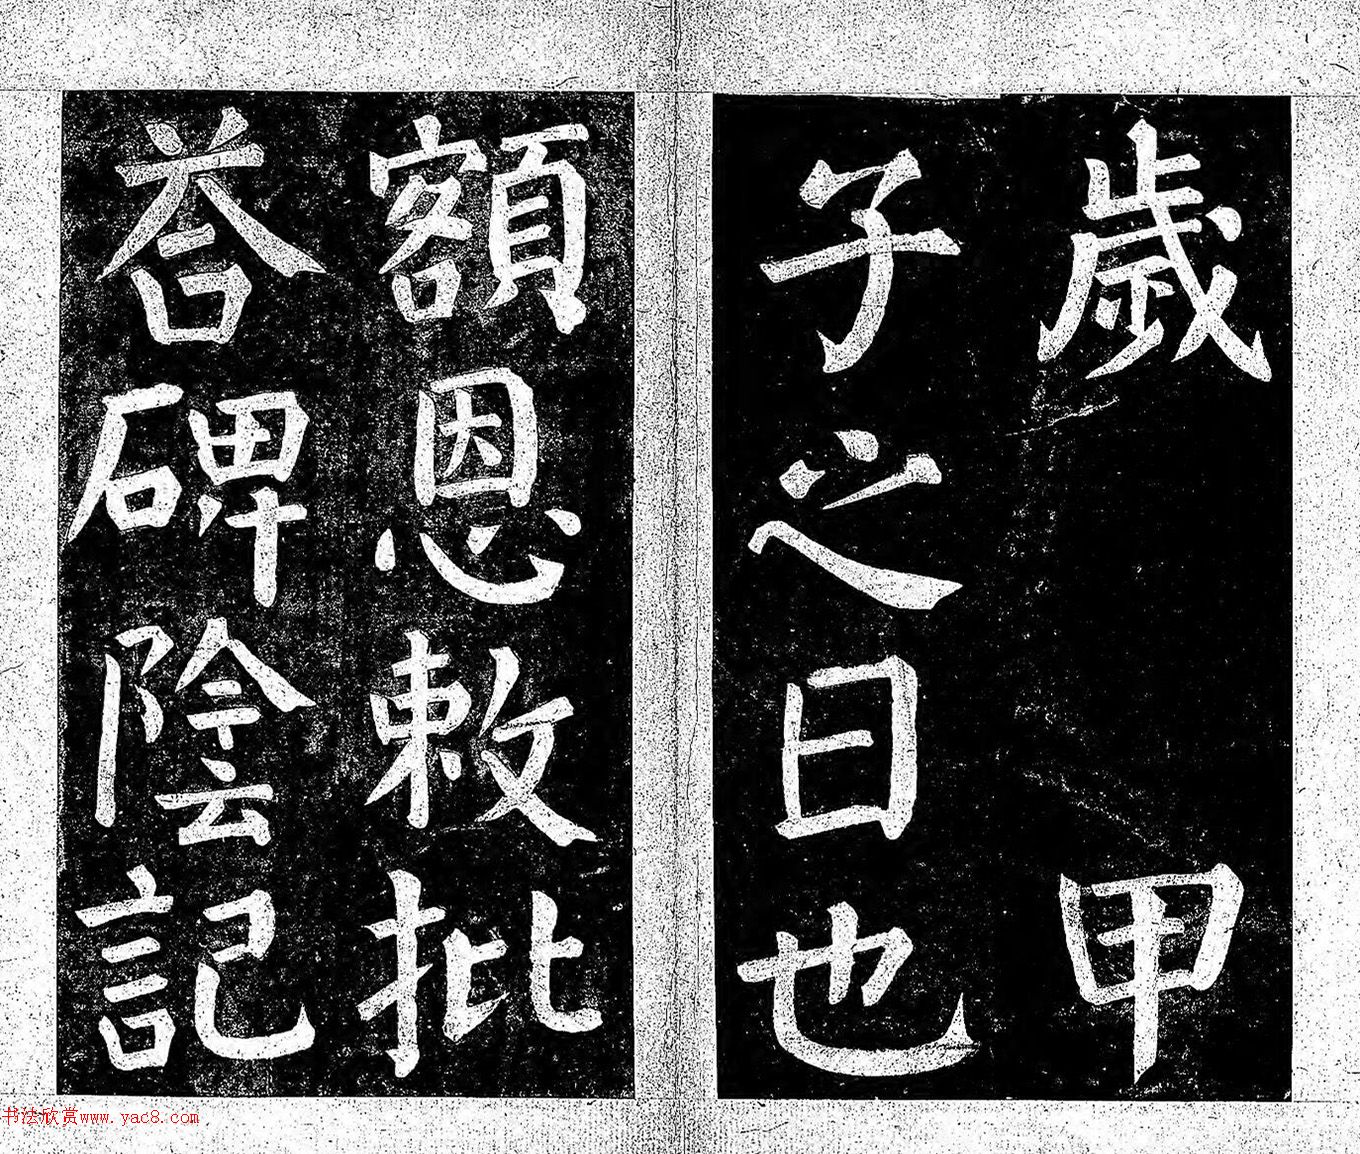 歲甲
子之日也
額恩敕批
荅碑陰記
书法欣赏www.yac8.com